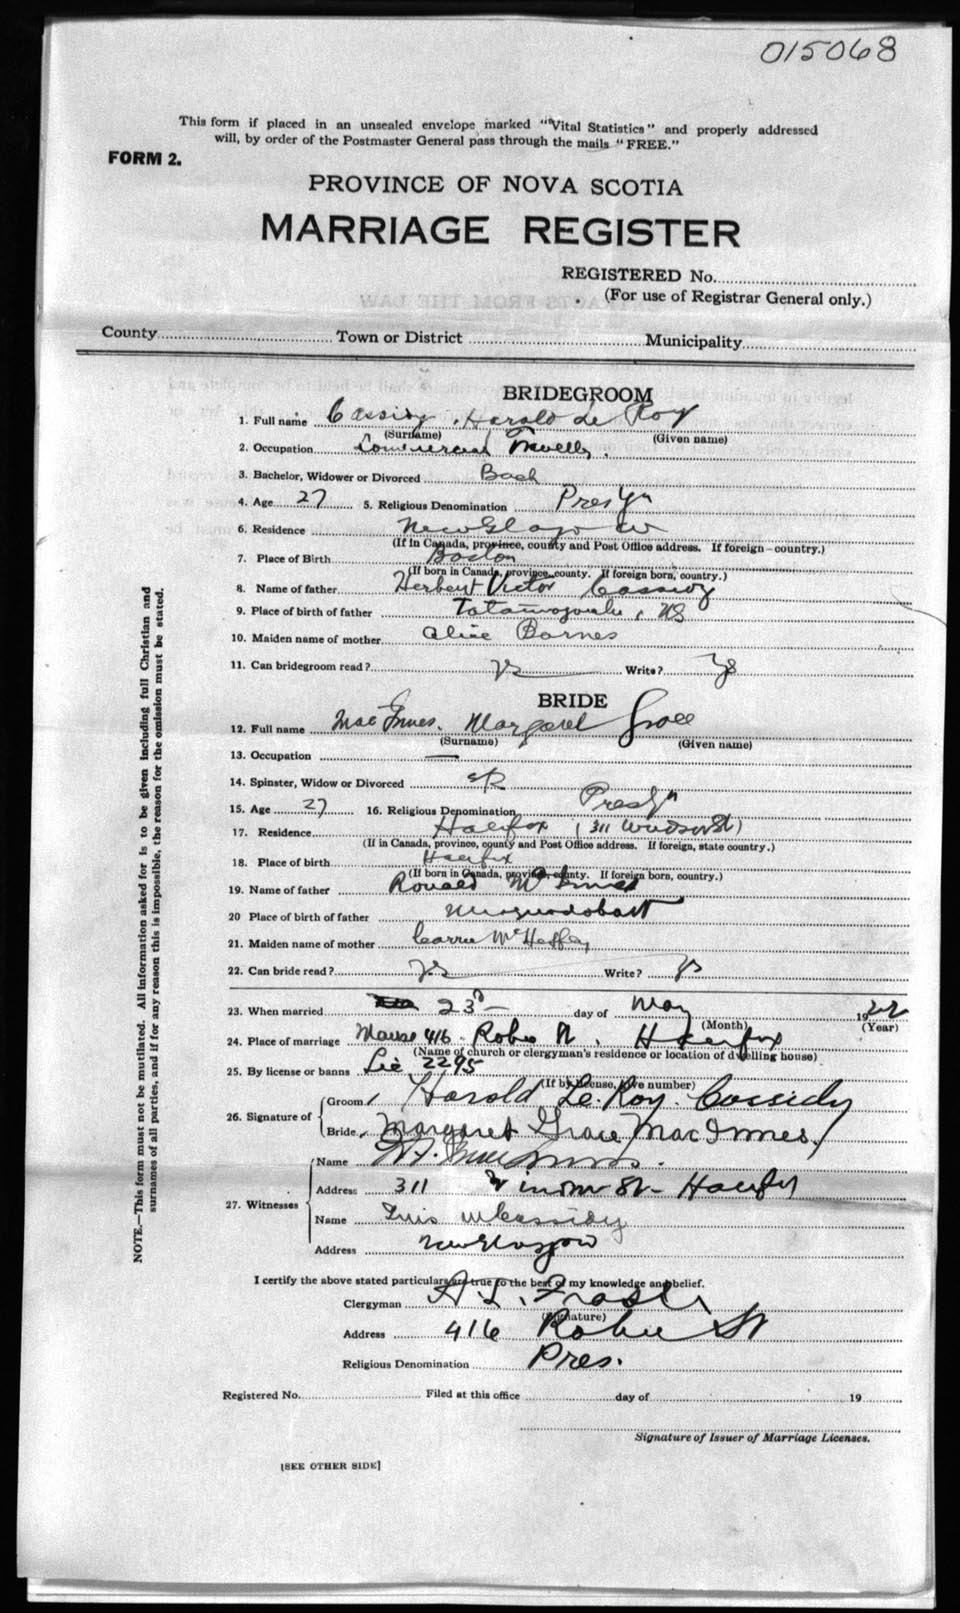 015068
This form if placed in an unsealed envelope marked "Vital Statistics" and properly addressed
will, by order of the Postmaster General pass through the mails "FREE."
FORM 2.
PROVINCE OF NOVA SCOTIA
MARRIAGE REGISTER
REGISTERED No.
(For use of Registrar General only.)
County Town or District Municipality
BRIDEGROOM
1. Full name Cassidy, Harold Le Roy
(Surname) (Given name)
2. Occupation Commercial Traveller.
3. Bachelor, Widower or Divorced Bach
4. Age 27 5. Religious Denomination Presyn
6. Residence New Glasgow
(If in Canada, province, county and Post Office address. If foreign—country.)
7. Place of Birth Boston
(If born in Canada, province, county. If foreign born, country.)
8. Name of father Herbert Victor Cassidy
9. Place of birth of father Tatamagouche, NS
10. Maiden name of mother Alice Barnes
11. Can bridegroom read? Yes Write? Yes
BRIDE
12. Full name MacInnes. Margaret Grace
(Surname) (Given name)
13. Occupation —
14. Spinster, Widow or Divorced sp
15. Age 27 16. Religious Denomination Presyn
17. Residence Halifax (311 Windsor St)
(If in Canada, province, county and Post Office address. If foreign, state country.)
18. Place of birth Halifax
(If born in Canada, province, county. If foreign born, country.)
19. Name of father Ronald McInnes
20 Place of birth of father Musquodoboit
21. Maiden name of mother Carrie McHeffey
22. Can bride read? Yes Write? Yes
23. When married 23d day of May 1922
(Month) (Year)
24. Place of marriage Manse 416 Robie St. Halifax
(Name of church or clergyman's residence or location of dwelling house)
25. By license or banns Lic 2295
(If by license, give number)
26. Signature of Groom Harold Le Roy Cassidy
Bride Margaret Grace MacInnes
27. Witnesses Name
Address 311 Windsor St - Halifax
Name Cassidy
Address New Glasgow
I certify the above stated particulars are true to the best of my knowledge and belief.
Clergyman A. L. Fraser
(Signature)
Address 416 Robie St
Religious Denomination Pres.
Registered No. Filed at this office day of 19
Signature of Issuer of Marriage Licenses.
[SEE OTHER SIDE]
NOTE.—This form must not be mutilated. All information asked for is to be given including full Christian and
surnames of all parties, and if for any reason this is impossible, the reason for the omission must be stated.